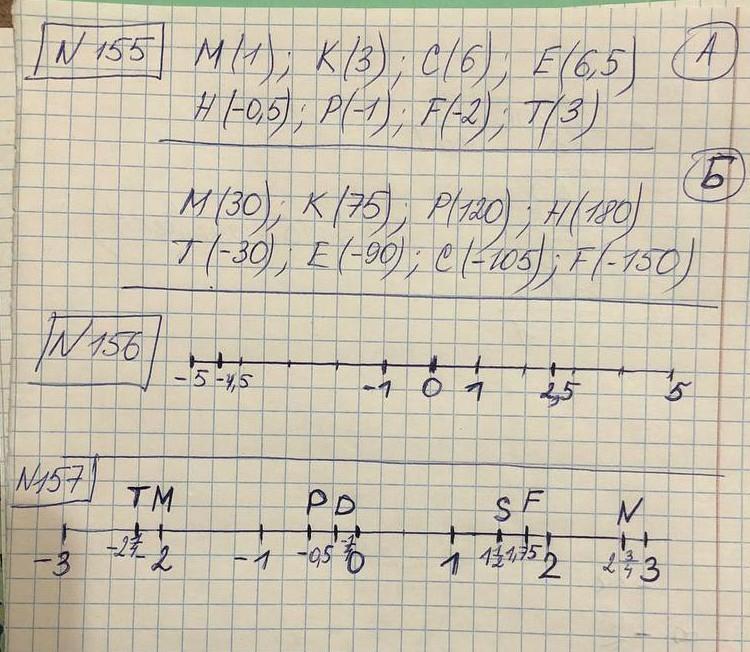 N 155 M(1); K(3); C(6); E(6,5) А
H(-0,5); P(-1); F(-2); T(3)
Б
M(30); K(75); P(120); H(180)
T(-30); E(-90); C(-105); F(-150)
N 156
-5 -4,5 -1 0 1 2,5 5
N157
T M P D S F N
-3 -2 1/4 -2 -1 -0,5 0 1 1 1/2 1,75 2 2 3/4 3